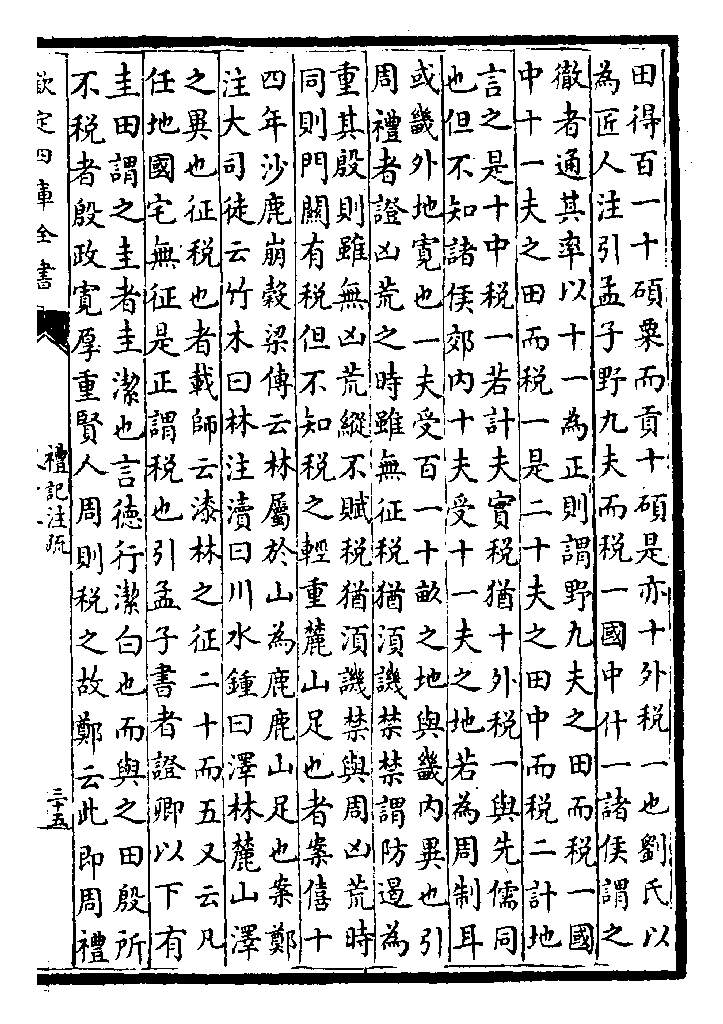 田得百一十碩粟而貢十碩是亦十外税一也劉氏以
為匠人注引孟子野九夫而税一國中什一諸侯謂之
徹者通其率以十一為正則謂野九夫之田而税一國
中十一夫之田而税一是二十夫之田中而税二計地
言之是十中税一若計夫實税猶十外税一與先儒同
也但不知諸侯郊内十夫受十一夫之地若為周制耳
或畿外地寛也一夫受百一十畝之地與畿内異也引
周禮者證凶荒之時雖無征税猶湏譏禁禁謂防遏為
重其殷則雖無凶荒縱不賦税猶湏譏禁與周凶荒時
同則門關有税但不知税之輕重麓山足也者案僖十
四年沙鹿崩穀梁傳云林屬於山為鹿鹿山足也案鄭
注大司徒云竹木曰林注瀆曰川水鍾曰澤林麓山澤
之異也征税也者載師云漆林之征二十而五又云凡
任地國宅無征是正謂税也引孟子書者證卿以下有
圭田謂之圭者圭潔也言德行潔白也而與之田殷所
不税者殷政寛厚重賢人周則税之故鄭云此即周禮
欽定四庫全書
禮記注疏
三十五